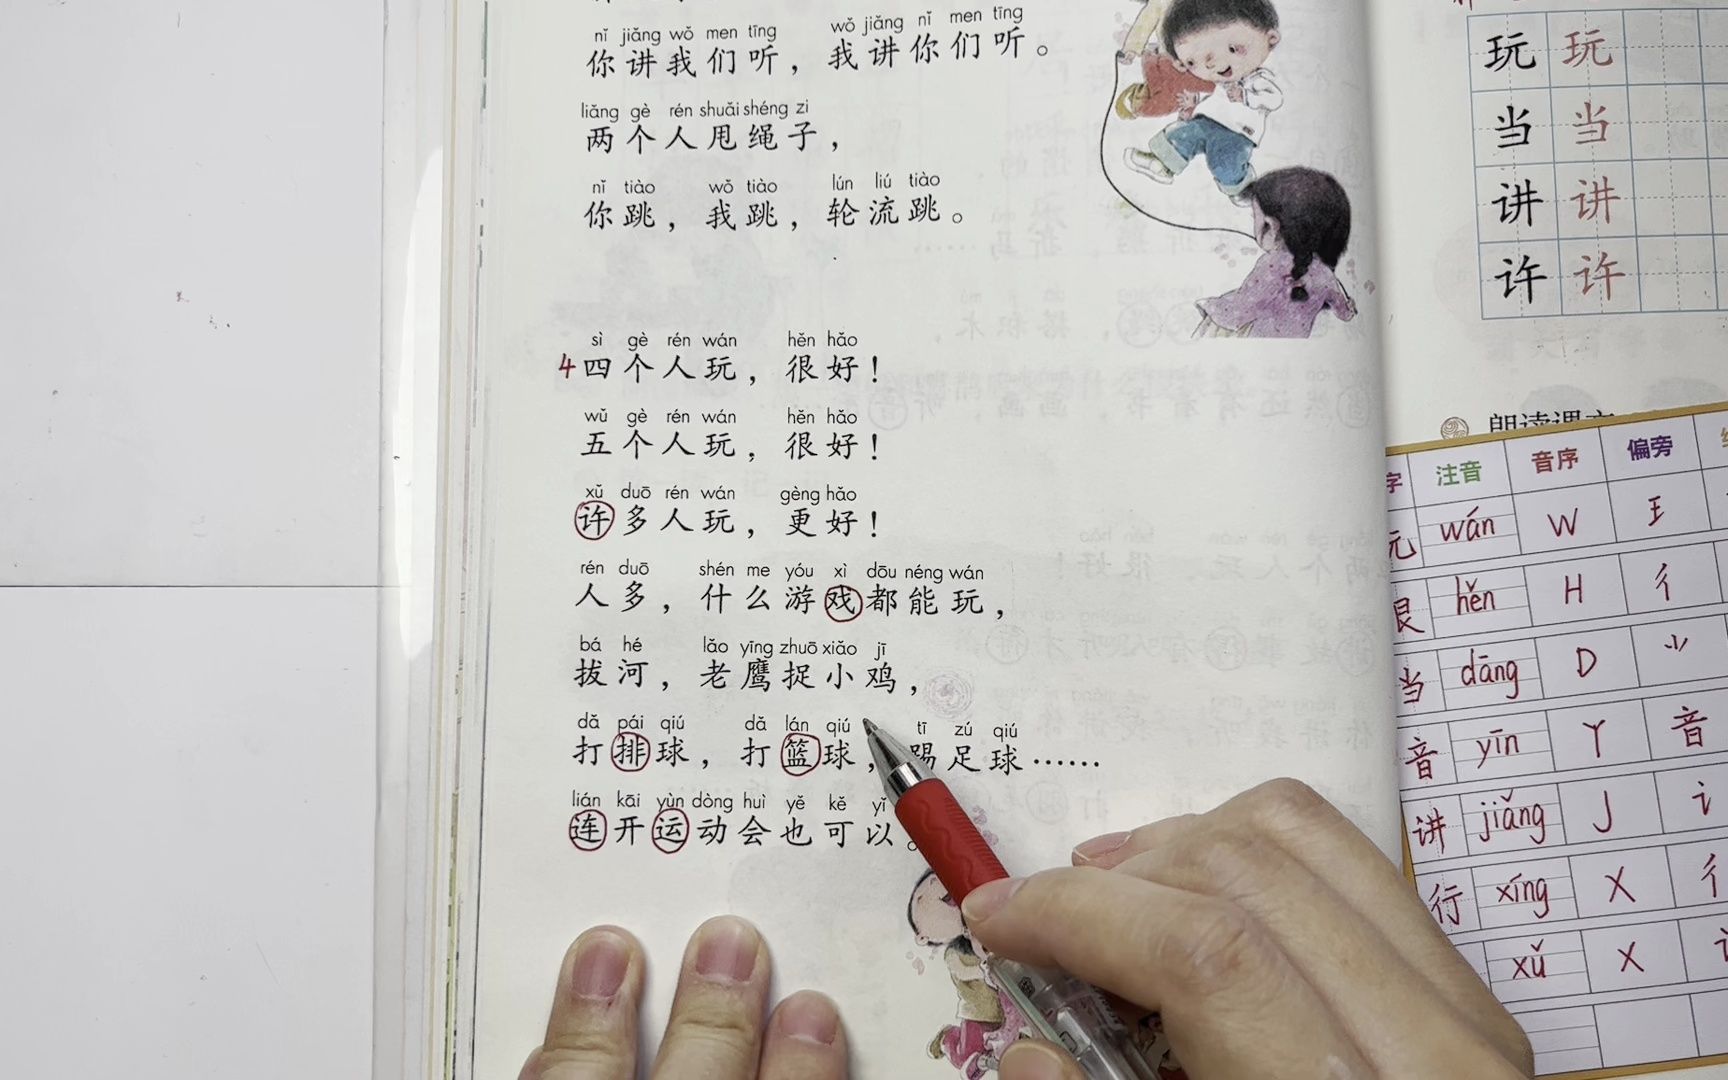 nǐ jiǎng wǒ men tīng wǒ jiǎng nǐ men tīng
你讲我们听，我讲你们听。
liǎng gè rén shuǎi shéng zi
两个人甩绳子，
nǐ tiào wǒ tiào lún liú tiào
你跳，我跳，轮流跳。
sì gè rén wán hěn hǎo
4四个人玩，很好！
wǔ gè rén wán hěn hǎo
五个人玩，很好！
xǔ duō rén wán gèng hǎo
许多人玩，更好！
rén duō shén me yóu xì dōu néng wán
人多，什么游戏都能玩，
bá hé lǎo yīng zhuō xiǎo jī
拔河，老鹰捉小鸡，
dǎ pái qiú dǎ lán qiú tī zú qiú
打排球，打篮球，踢足球……
lián kāi yùn dòng huì yě kě yǐ
连开运动会也可以。
玩 玩
当 当
讲 讲
许 许
朗读课文
字 注音 音序 偏旁
玩 wán W 王
很 hěn H 彳
当 dāng D ⺌
音 yīn Y 音
讲 jiǎng J 讠
行 xíng X 彳
xǔ X 讠